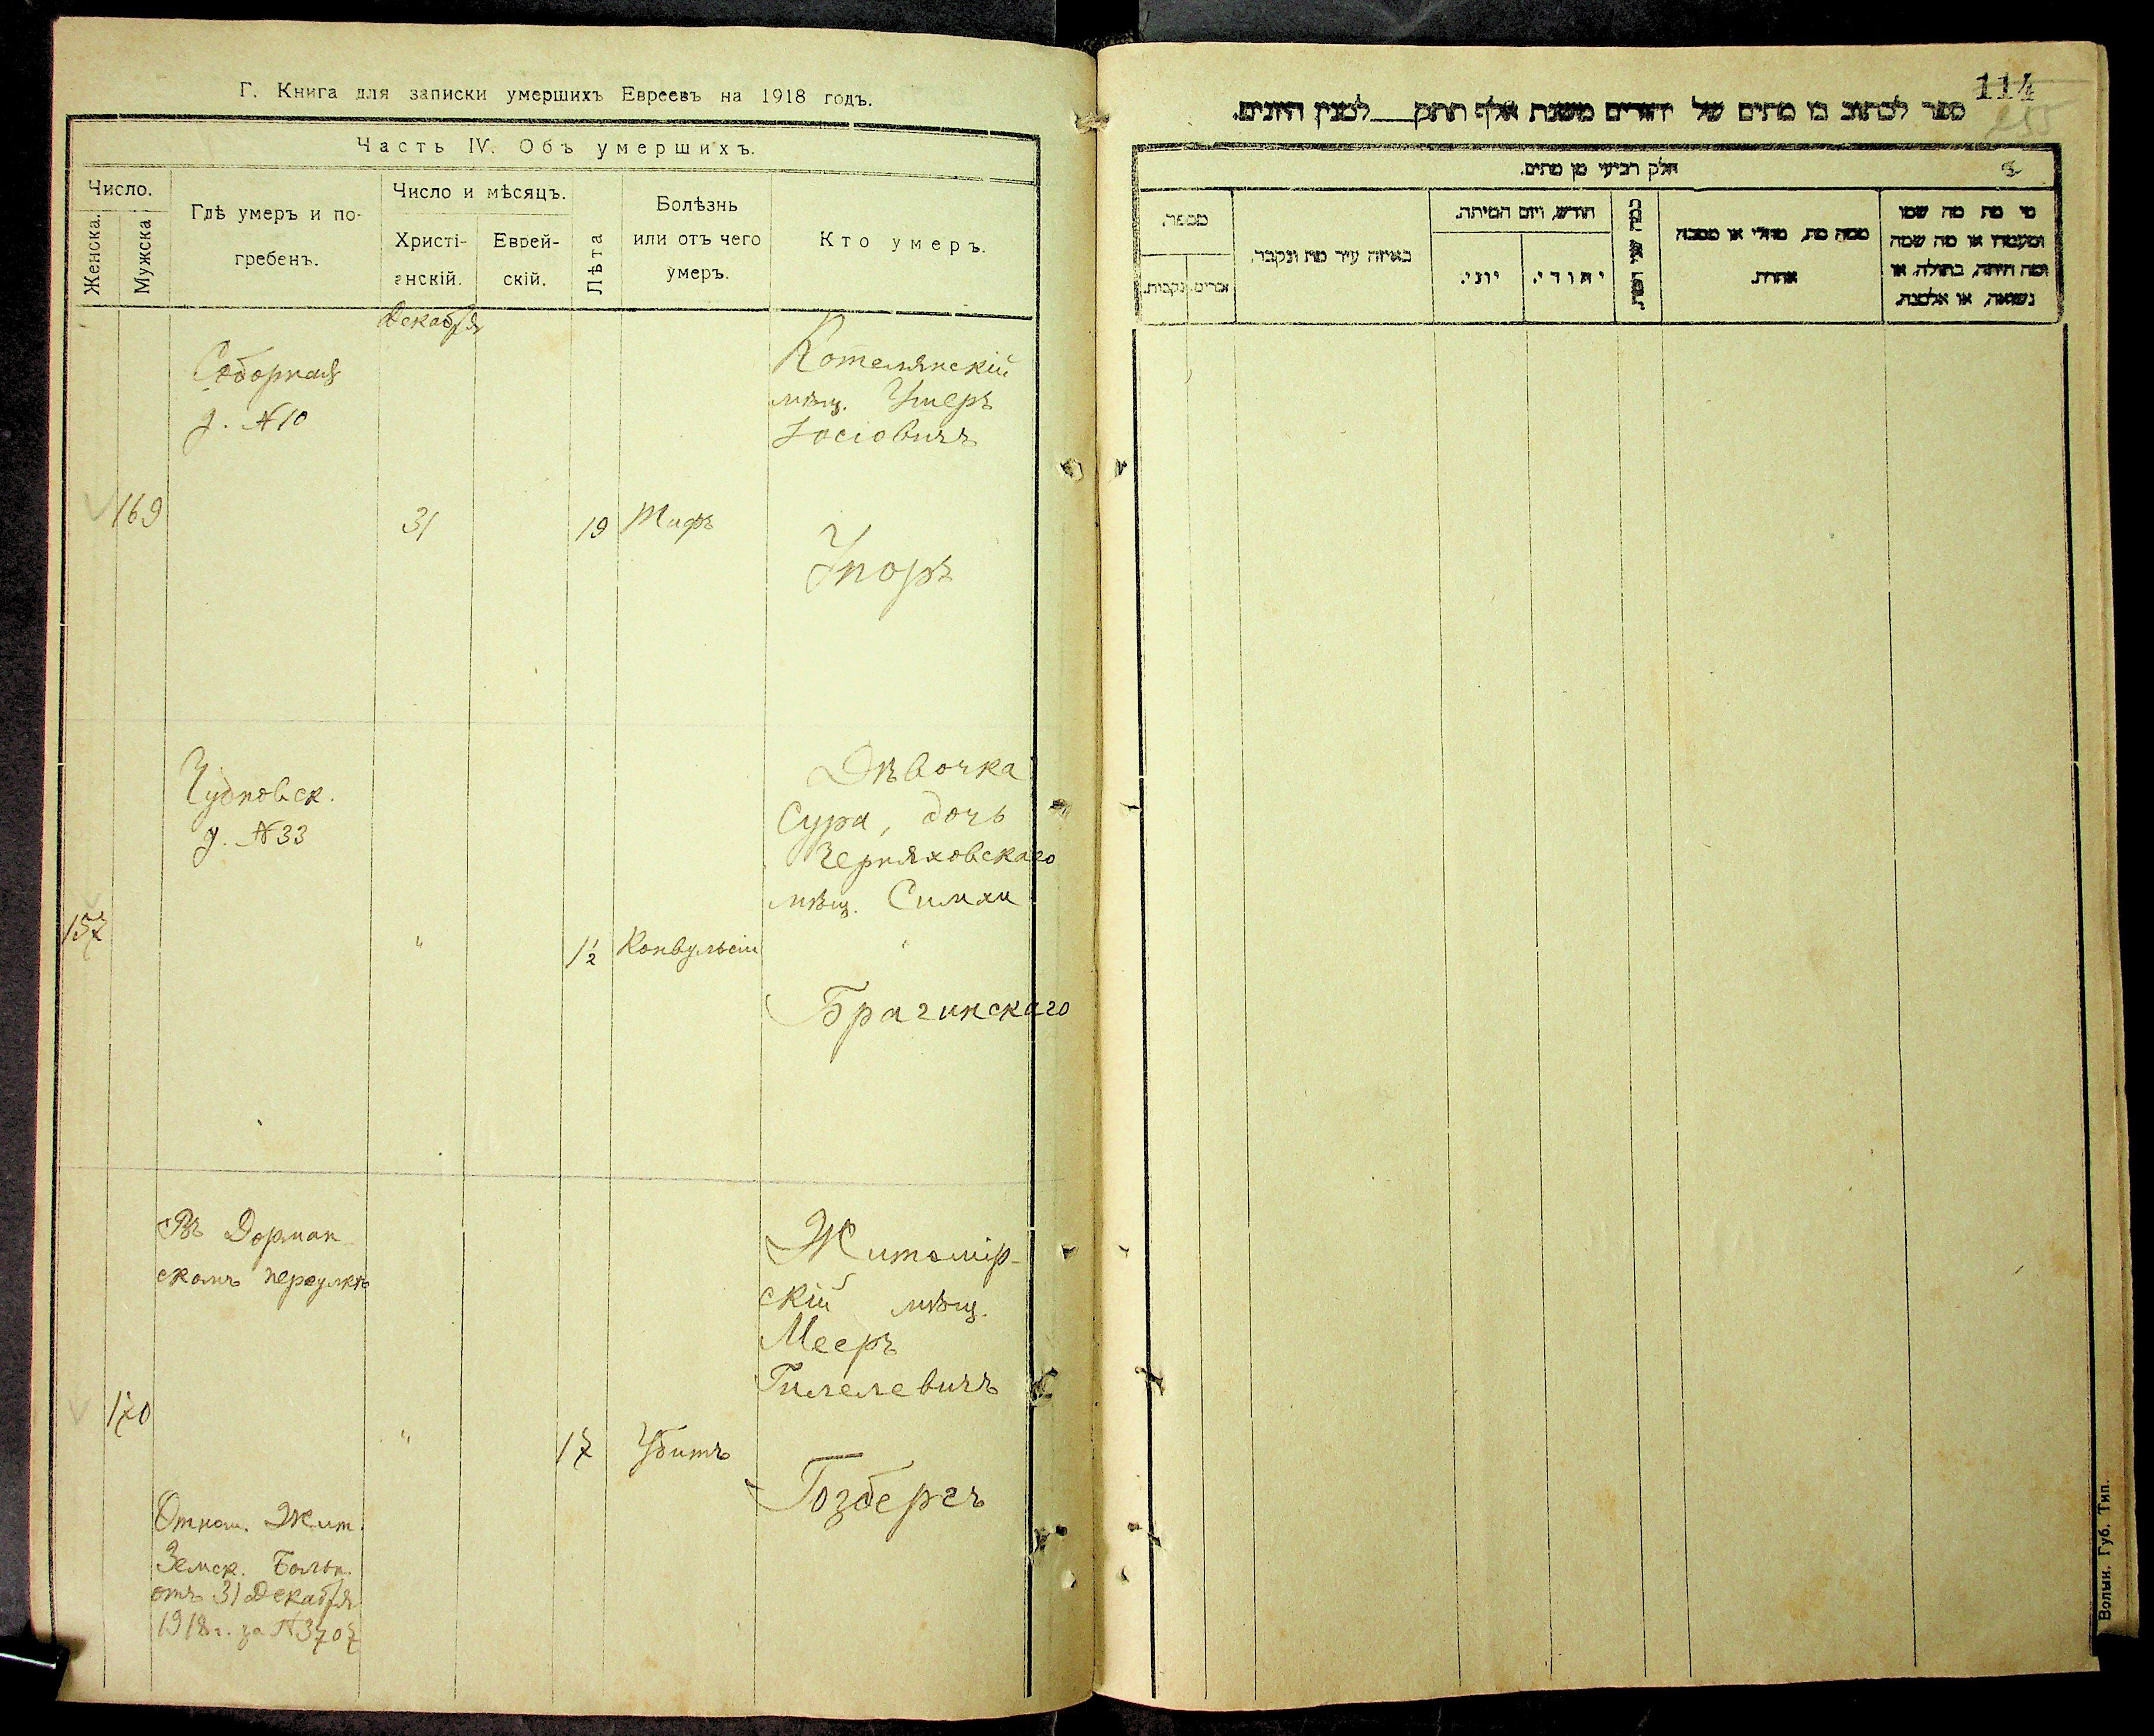 Г. Книга для записки умершихъ Евреевъ на 1918 годъ.
Часть IV. Объ умершихъ.
Число.
Женска.
Мужска
Гдѣ умеръ и по-
гребенъ.
Число и мѣсяцъ.
Христі-
анскій.
Еврей-
скій.
Лѣта
Болѣзнь
или отъ чего
умеръ.
Кто умеръ.
Декабря
Соборная
д. №10
169
31
19
Тифъ
Котелянскій
мѣщ. Ушеръ
Іосіовичъ
Упоръ
Чудновск.
д. №33
157
"
1½
Конвульсіи
Дѣвочка
Сура, дочь
Черняховскаго
мѣщ. Симхи
Брагинскаго
Въ Дорман
скомъ переулкѣ
170
"
17
Убитъ
Житомір-
скій мѣщ.
Мееръ
Гилелевичъ
Гозбергъ
Отнош. Жит.
Земск. Больн.
отъ 31 Декабря
1918 г. за №3707
114
255
ספר לכתוב בו מתים של יהודים משנת אלף תתק___ למנין היונים.
חלק רביעי מן מתים.
מספר.
זכרים.
נקבות.
באיזה עיר מת ונקבר.
חודש, ויום המיתה.
יוני.
יהודי.
ממה מת, מחלי או מסבה
אחרת.
מי מת מה שמו
ומעמדו או מה שמה
ומה היתה, בתולה, או
נשואה, או אלמנה.
Волын. Губ. Тип.